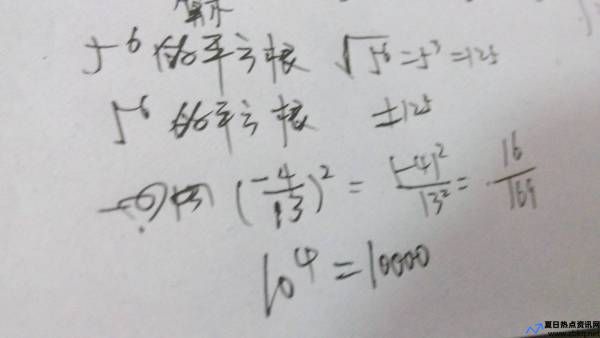 算术
5⁶的平方根 √5⁶=5³=125
5⁶的平方根 ±125
(-4/13)²=(-4)²/13²=16/169
10⁴=10000
夏日热点资讯网